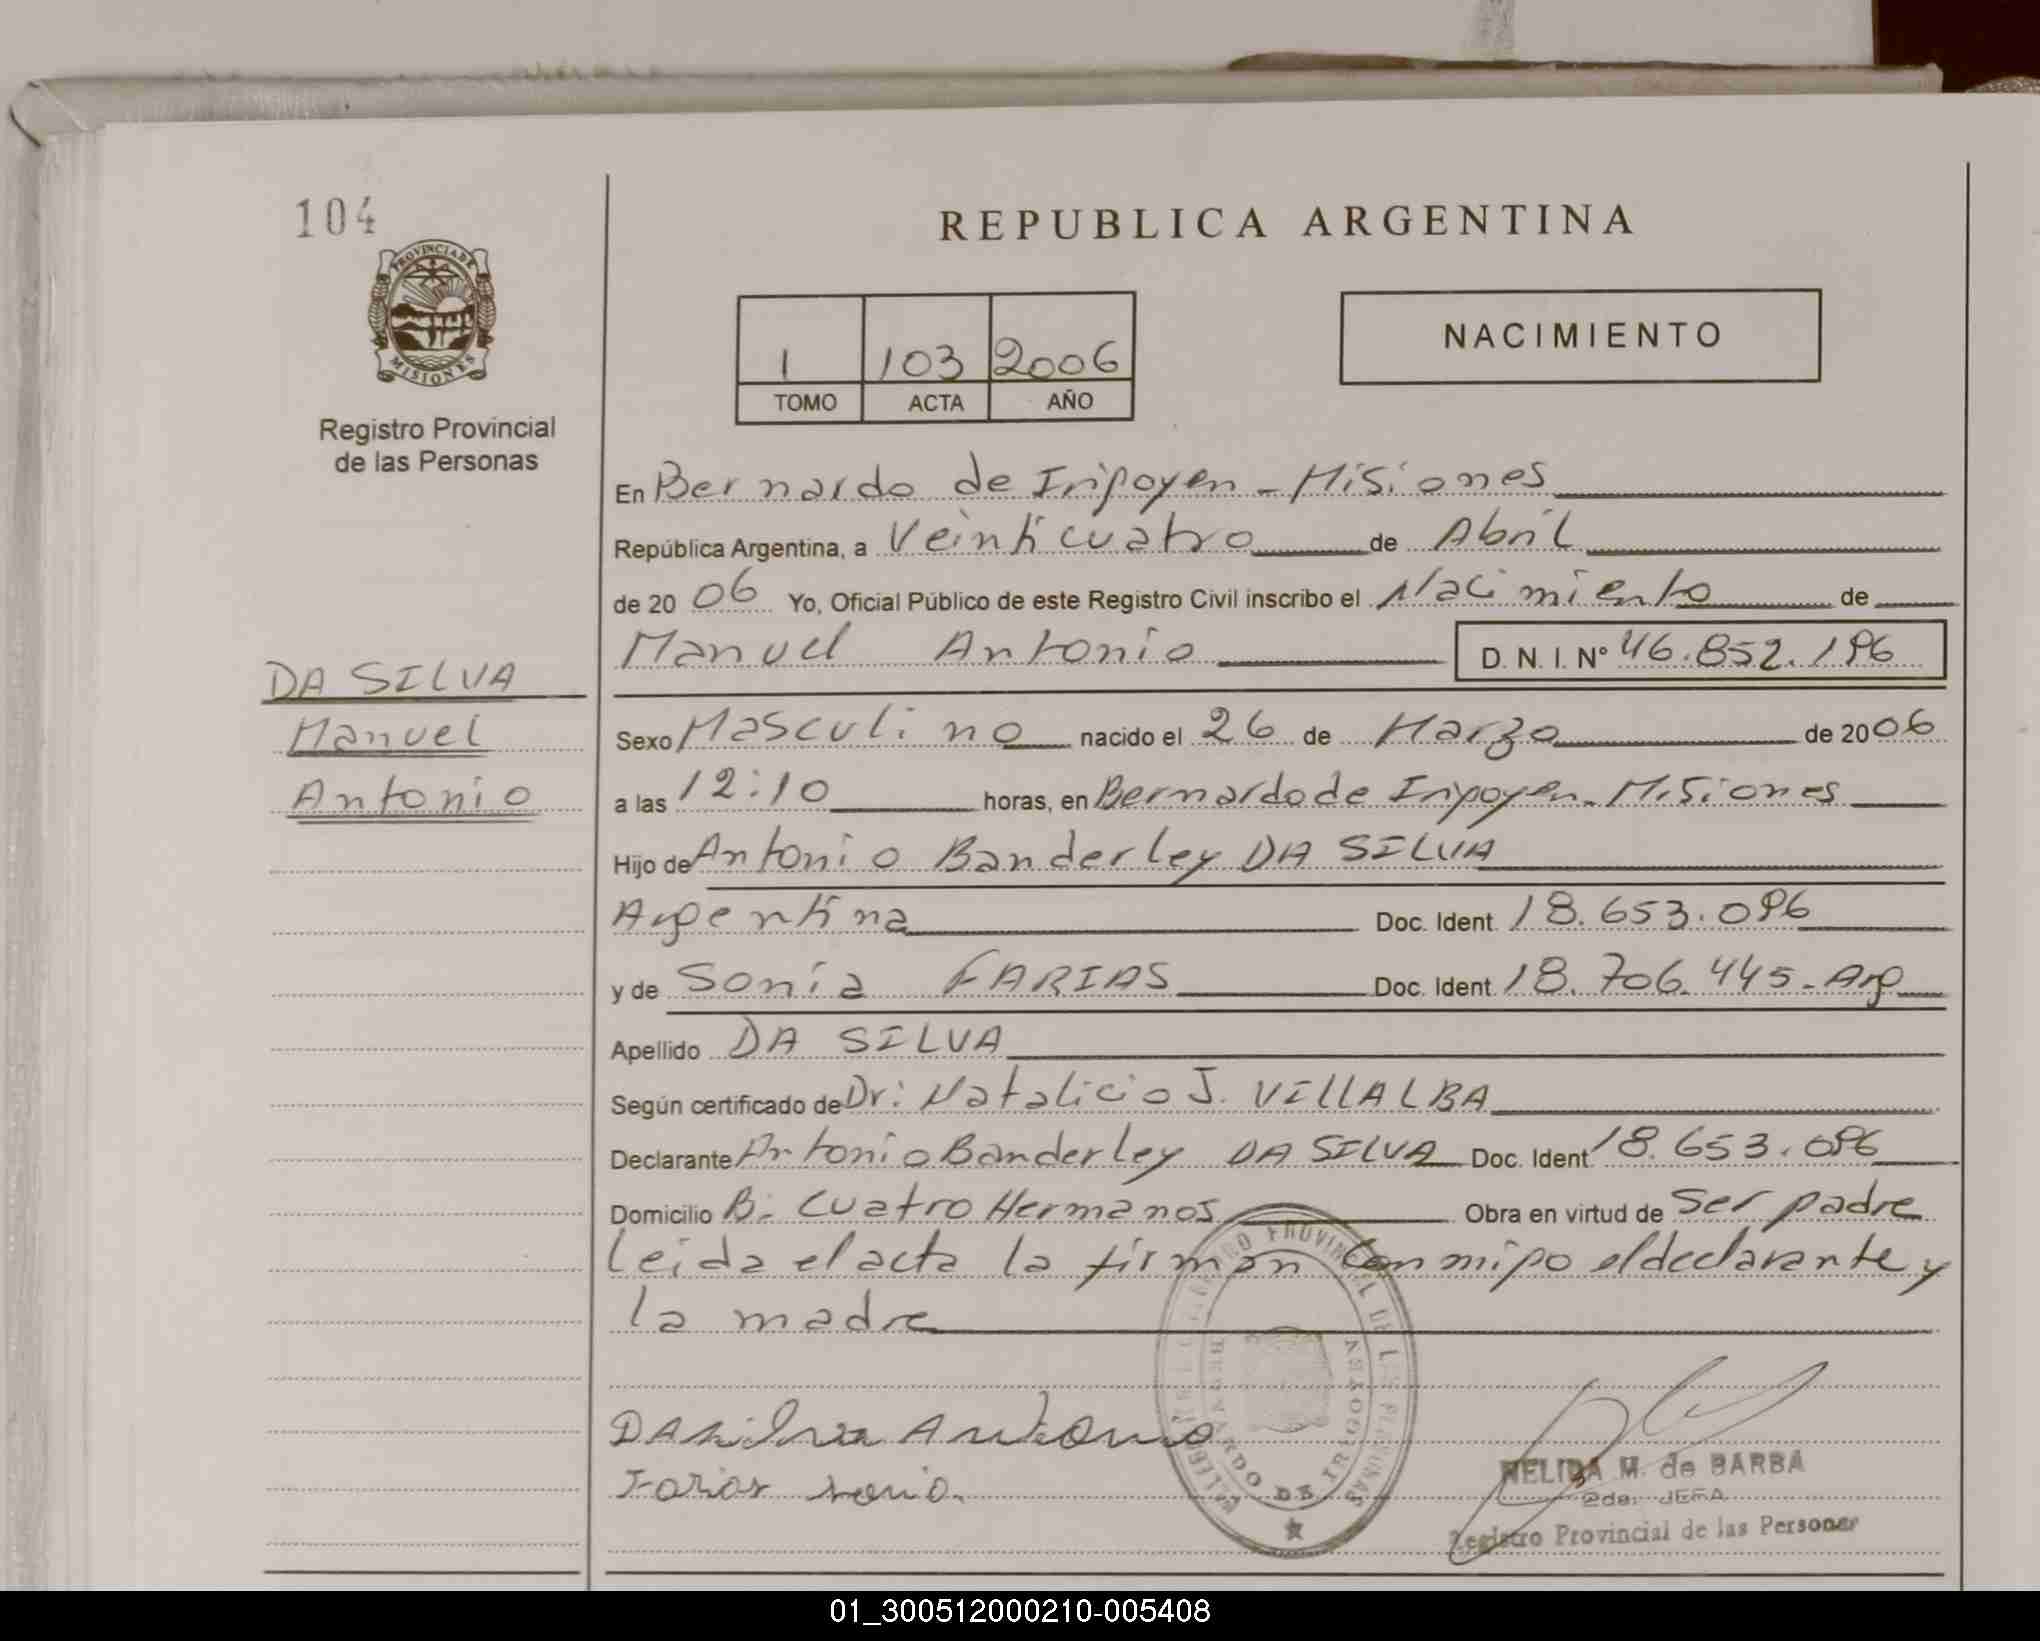 104
PROVINCIA DE
MISIONES
Registro Provincial
de las Personas
REPUBLICA ARGENTINA
1 103 2006
TOMO ACTA AÑO
NACIMIENTO
En Bernardo de Irigoyen - Misiones
República Argentina, a Veinticuatro de Abril
de 2006 Yo, Oficial Público de este Registro Civil inscribo el Nacimiento de
Manuel Antonio D. N. I. Nº 46.852.196
DA SILVA
Manuel
Antonio
Sexo Masculino nacido el 26 de Marzo de 2006
a las 12:10 horas, en Bernardo de Irigoyen - Misiones
Hijo de Antonio Banderley DA SILVA
Argentina Doc. Ident. 18.653.096
y de Sonia FARIAS Doc. Ident. 18.706.445 - Arg
Apellido DA SILVA
Según certificado de Dr: Natalicio J. VILLALBA
Declarante Antonio Banderley DA SILVA Doc. Ident 18.653.096
Domicilio B: Cuatro Hermanos Obra en virtud de Ser padre
Leida el acta la firman conmigo el declarante y
la madre
DA Silva Antonio
Farias Sonia.
BERNARDO DE IRIGOYEN
NELIDA M. de BARBA
2da. JEFA
Registro Provincial de las Personas
01_300512000210-005408